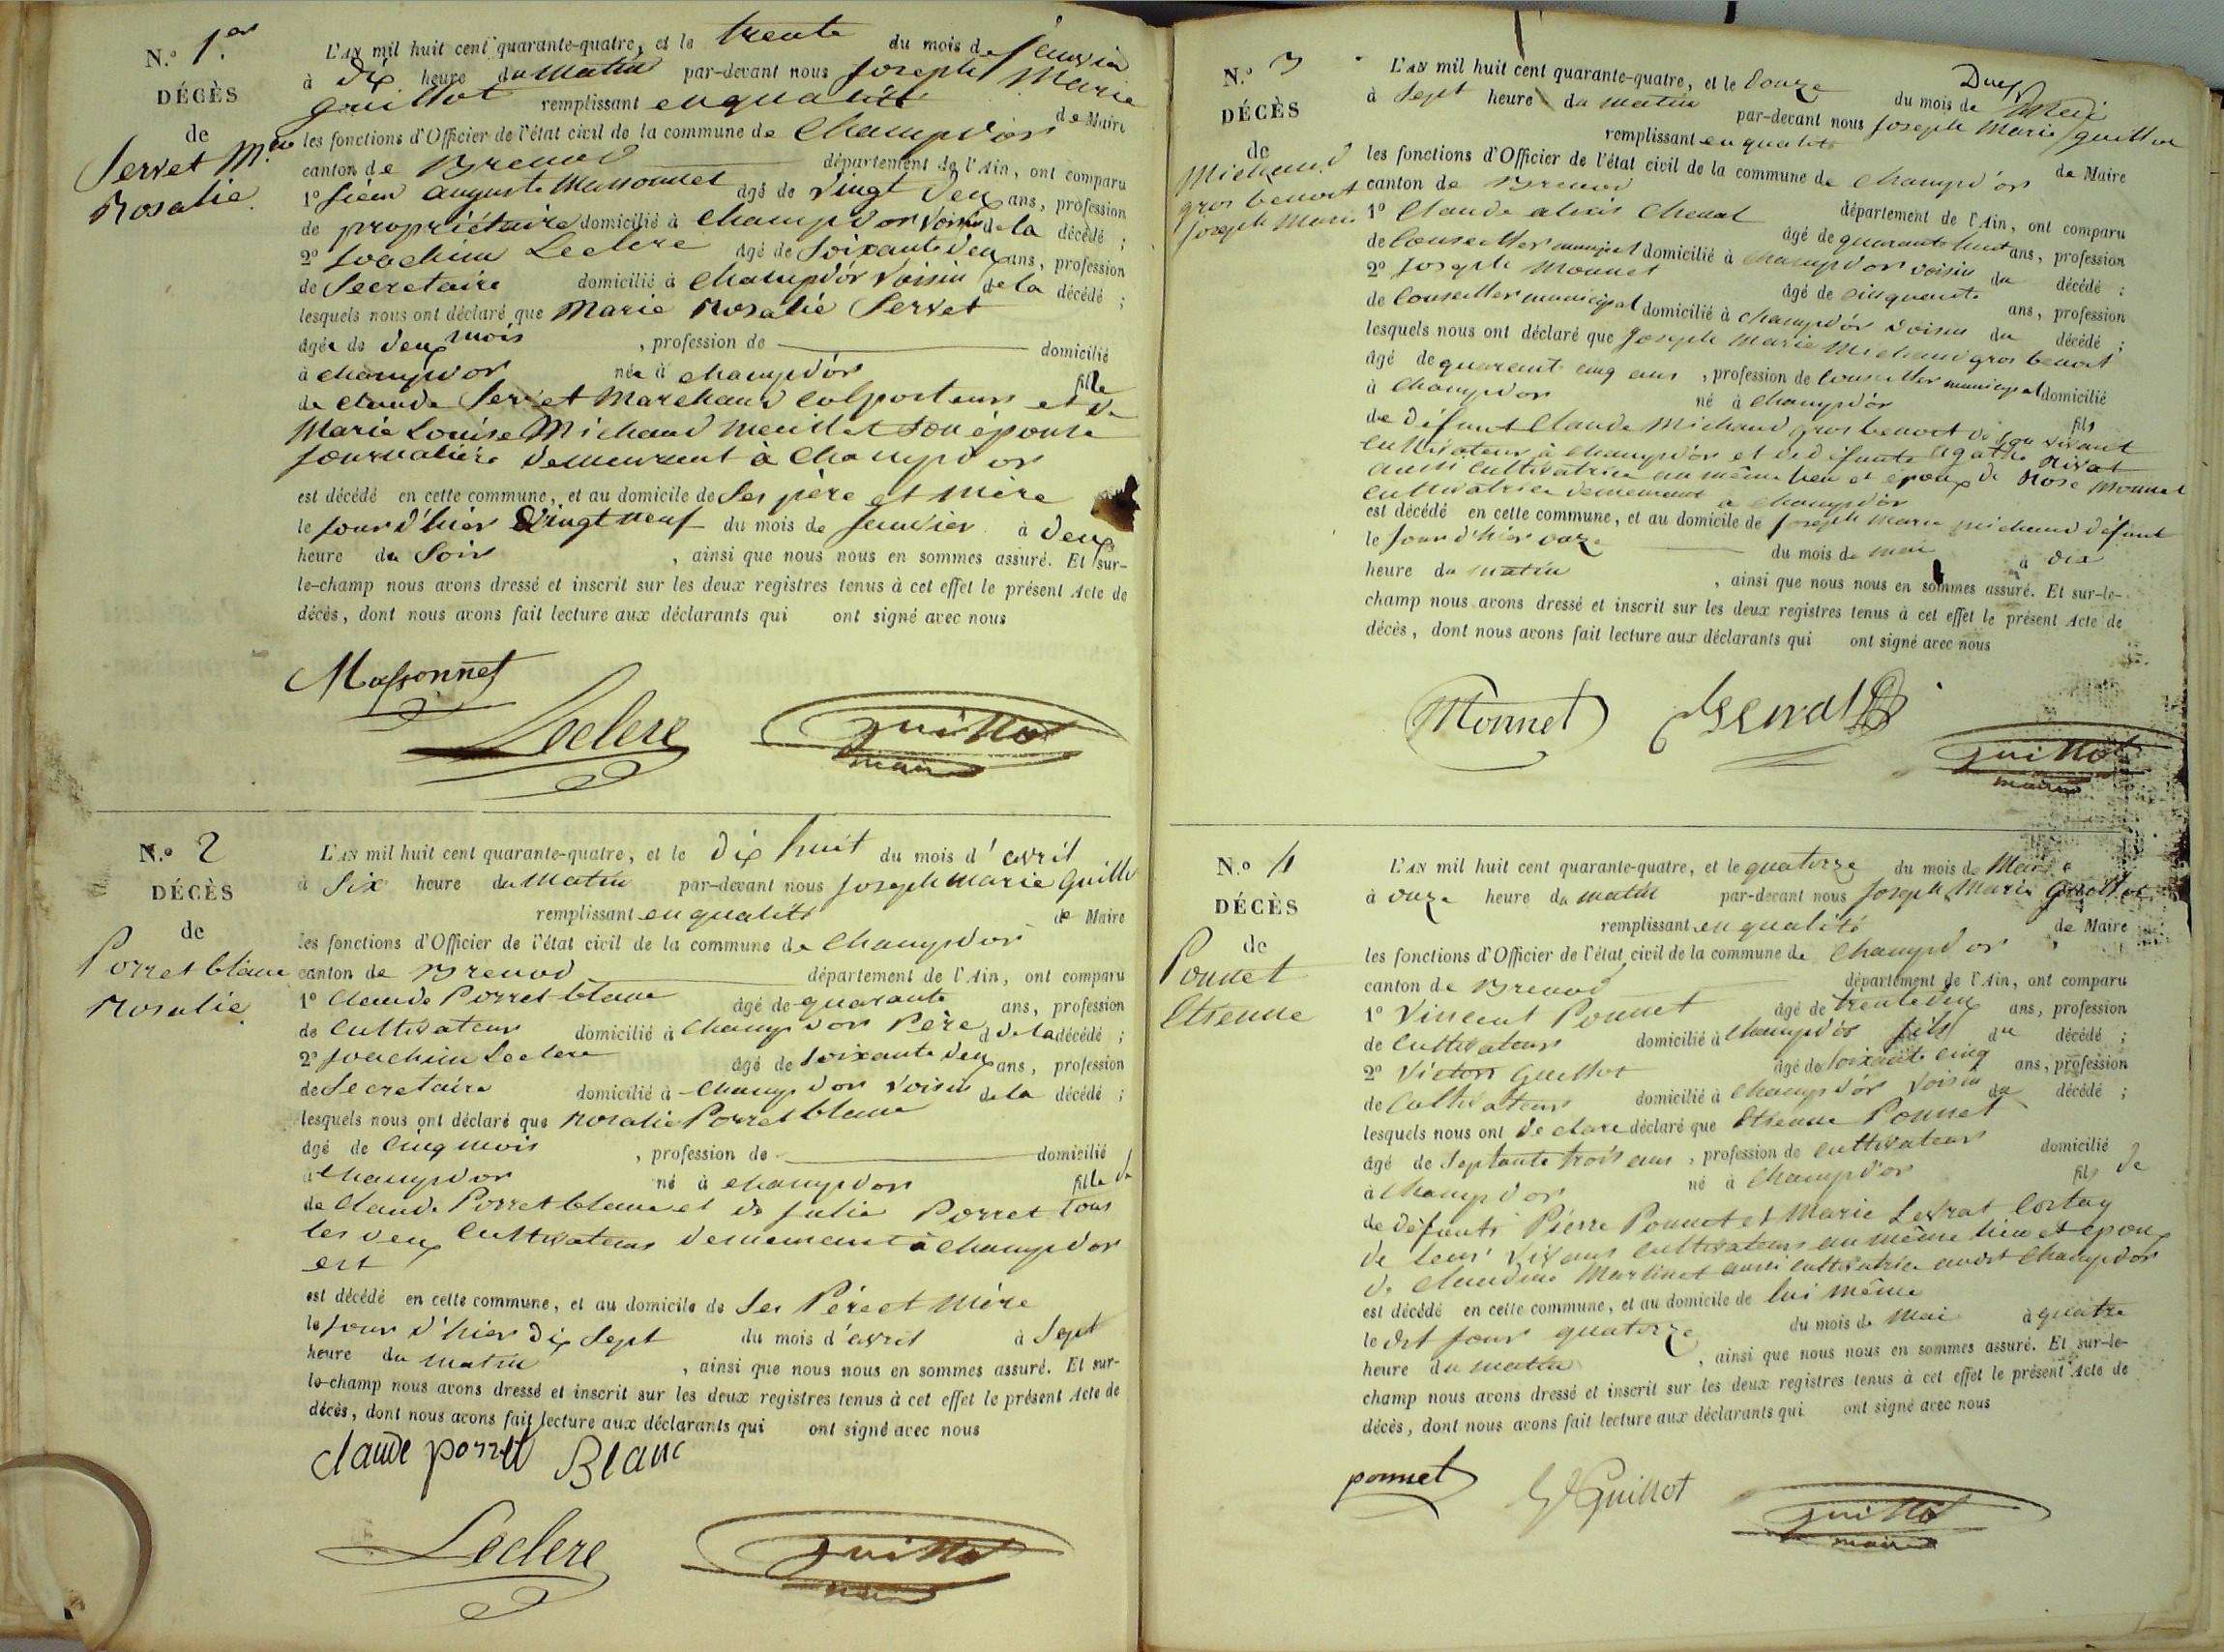 N.o 1.er
DÉCÈS
de
Servet M.ie
Rosalie.
L'AN mil huit cent quarante-quatre, et le trente du mois de janvier
à dix heure du matin par-devant nous joseph Marie
guillot remplissant en qualité de Maire
les fonctions d'Officier de l'état civil de la commune de Champdor
canton de Brenod département de l'Ain, ont comparu
1o Sieur auguste Massonnet âgé de vingt deux ans, profession
de propriétaire domicilié à Champdor voisin de la décédé ;
2o Joachim Leclere âgé de Soixante deux ans, profession
de Secretaire domicilié à Champdor voisin de la décédé ;
lesquels nous ont déclaré que Marie Rosalie Servet
âgée de deux mois , profession de domicilié
à champdor née à champdor fille
de claude Servet Marchand Colporteur et de
Marie Louise Michaud Meuillet son épouse
journalière demeurant à Champdor
est décédé en cette commune, et au domicile de Ses père et mère
le jour d'hier vingt neuf du mois de janvier à deux
heure du Soir , ainsi que nous nous en sommes assuré. Et sur-
le-champ nous avons dressé et inscrit sur les deux registres tenus à cet effet le présent Acte de
décès, dont nous avons fait lecture aux déclarants qui ont signé avec nous
Massonnet
Leclere guillot
maire
N.o 2
DÉCÈS
de
Porret blanc
Rosalie.
L'AN mil huit cent quarante-quatre, et le dix huit du mois d'avril
à Six heure du Matin par-devant nous joseph marie Guillo
remplissant en qualité de Maire
les fonctions d'Officier de l'état civil de la commune de Champdor
canton de Brenod département de l'Ain, ont comparu
1o Claude Porret-blanc âgé de quarante ans, profession
de Cultivateur domicilié à Champdor Père de la décédé ;
2o Joachim Leclere âgé de Soixante deux ans, profession
de Secretaire domicilié à Champdor voisin de la décédé ;
lesquels nous ont déclaré que Rosalie Porret blanc
âgé de Cinq mois , profession de domicilié
à Champdor né à champdor fille de
de Claude Porret blanc et de julie Porret tous
les deux Cultivateurs demeurant à Champdor
est
est décédé en cette commune, et au domicile de Ses Père et Mère
le jour d'hier dix Sept du mois d'avril à Sept
heure du matin , ainsi que nous nous en sommes assuré. Et sur-
le-champ nous avons dressé et inscrit sur les deux registres tenus à cet effet le présent Acte de
décès, dont nous avons fait lecture aux déclarants qui ont signé avec nous
claude porret Blanc
Leclere guillot
maire
N.o 3
DÉCÈS
de
Michaud
gros benoit
Joseph Marie
L'AN mil huit cent quarante-quatre, et le douze du mois de Mai
à Sept heure du matin par-devant nous joseph Marie guillot
remplissant en qualité de Maire
les fonctions d'Officier de l'état civil de la commune de Champdor
canton de Brenod département de l'Ain, ont comparu
1o Claude alexis Chenal âgé de quarante huit ans, profession
de Conseiller municipal domicilié à Champdor voisin du décédé ;
2o Joseph Monnet âgé de cinquante ans, profession
de Conseiller municipal domicilié à Champdor voisin du décédé ;
lesquels nous ont déclaré que Joseph Marie Michaud gros benoit
âgé de quarante cinq ans , profession de Conseiller municipal domicilié
à Champdor né à Champdor fils
de défunt Claude Michaud gros benoit de son vivant
Cultivateur à Champdor et de défunte agathe Nivat
aussi Cultivatrice au même lieu et époux de Rose Monnet
Cultivatrice demeurant à Champdor
est décédé en cette commune, et au domicile de joseph Marie michaud défunt
le jour d'hier onze du mois de mai à dix
heure du matin , ainsi que nous nous en sommes assuré. Et sur-le-
champ nous avons dressé et inscrit sur les deux registres tenus à cet effet le présent Acte de
décès, dont nous avons fait lecture aux déclarants qui ont signé avec nous
Monnet
guillot
maire
N.o 4
DÉCÈS
de
Ponnet
Etienne
L'AN mil huit cent quarante-quatre, et le quatorze du mois de Mai
à onze heure du matin par-devant nous joseph Marie Guillot
remplissant en qualité de Maire
les fonctions d'Officier de l'état civil de la commune de Champdor
canton de Brenod département de l'Ain, ont comparu
1o Vincent Ponnet âgé de trente deux ans, profession
de Cultivateur domicilié à Champdor fils du décédé ;
2o Victor Guillot âgé de soixante cinq ans, profession
de Cultivateur domicilié à Champdor voisin du décédé ;
lesquels nous ont declare déclaré que Etienne Ponnet
âgé de Septante trois ans , profession de cultivateur domicilié
à Champdor né à Champdor fils de
de défunts Pierre Ponnet et Marie Levrat Cortay
de leur vivans cultivateurs au même lieu et époux
de Claudine Martinet aussi cultivatrice audit Champdor
est décédé en cette commune, et au domicile de lui même
le dit jour quatorze du mois de mai à quatre
heure du matin , ainsi que nous nous en sommes assuré. Et sur-le-
champ nous avons dressé et inscrit sur les deux registres tenus à cet effet le présent Acte de
décès, dont nous avons fait lecture aux déclarants qui ont signé avec nous
ponnet Guillot guillot
maire